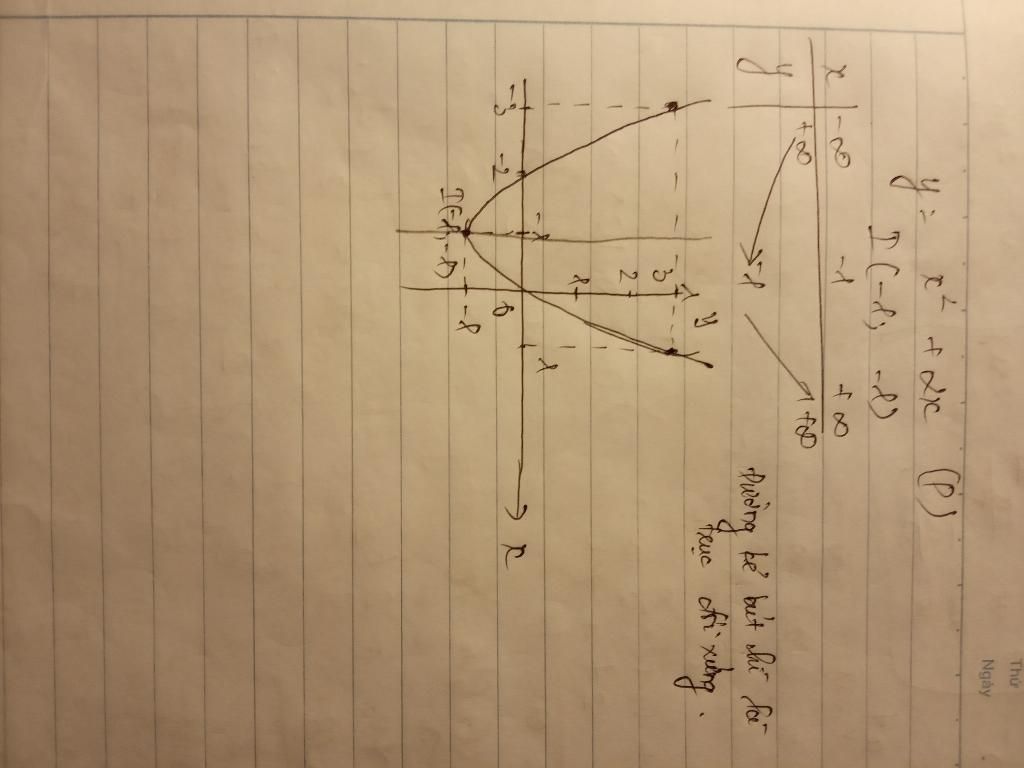 Thứ
Ngày
y = x² + 2x (P)
I(-1; -1)
x -∞ -1 +∞
y +∞ -1 +∞
Đường kẻ bút chì là
trục đối xứng.
y
-3 3
2
1
-3 -2 -1 1
0 x
-1
I(-1,-1)